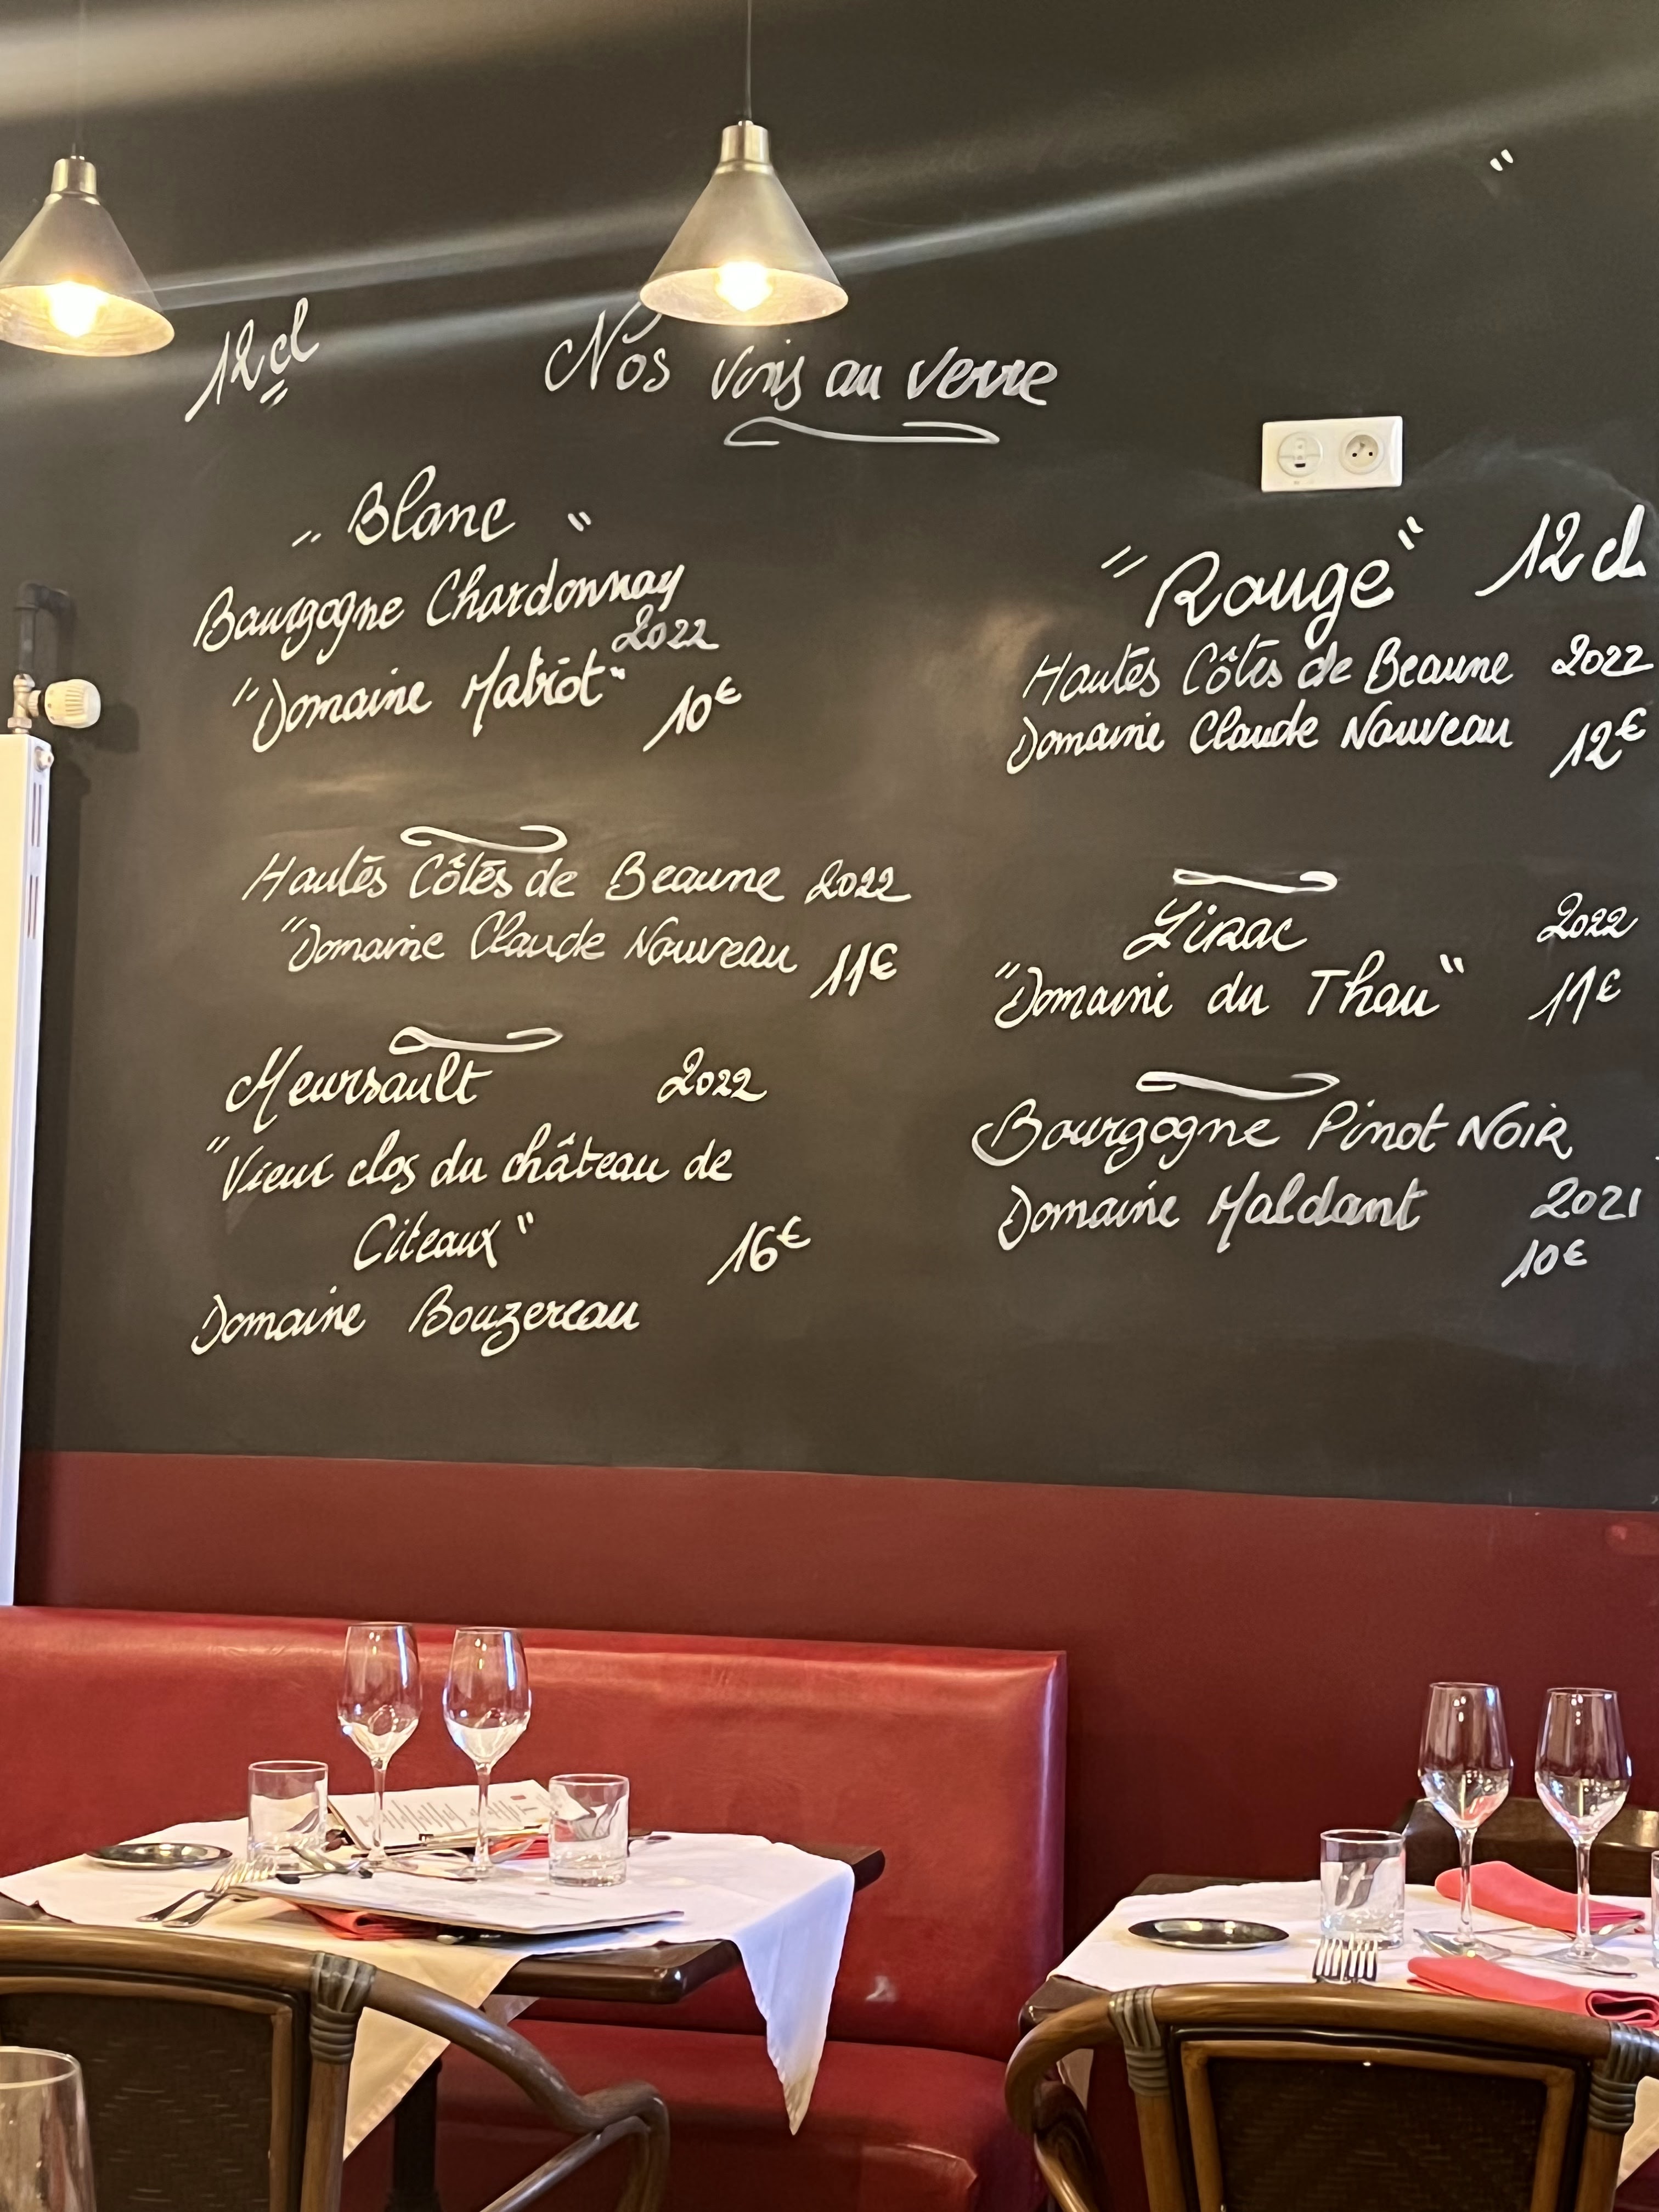 12cl
Nos vins au verre
"Blanc"
Bourgogne Chardonnay
2022
"Domaine Matrot"
10€
Hautes Côtes de Beaune 2022
"Domaine Claude Nouveau 11€
Meursault 2022
"Vieux clos du château de
Citeaux" 16€
Domaine Bouzereau
"Rouge" 12cl
Hautes Côtes de Beaune 2022
Domaine Claude Nouveau 12€
Lirac 2022
"Domaine du Thau" 11€
Bourgogne Pinot NoiR
Domaine Maldant 2021
10€